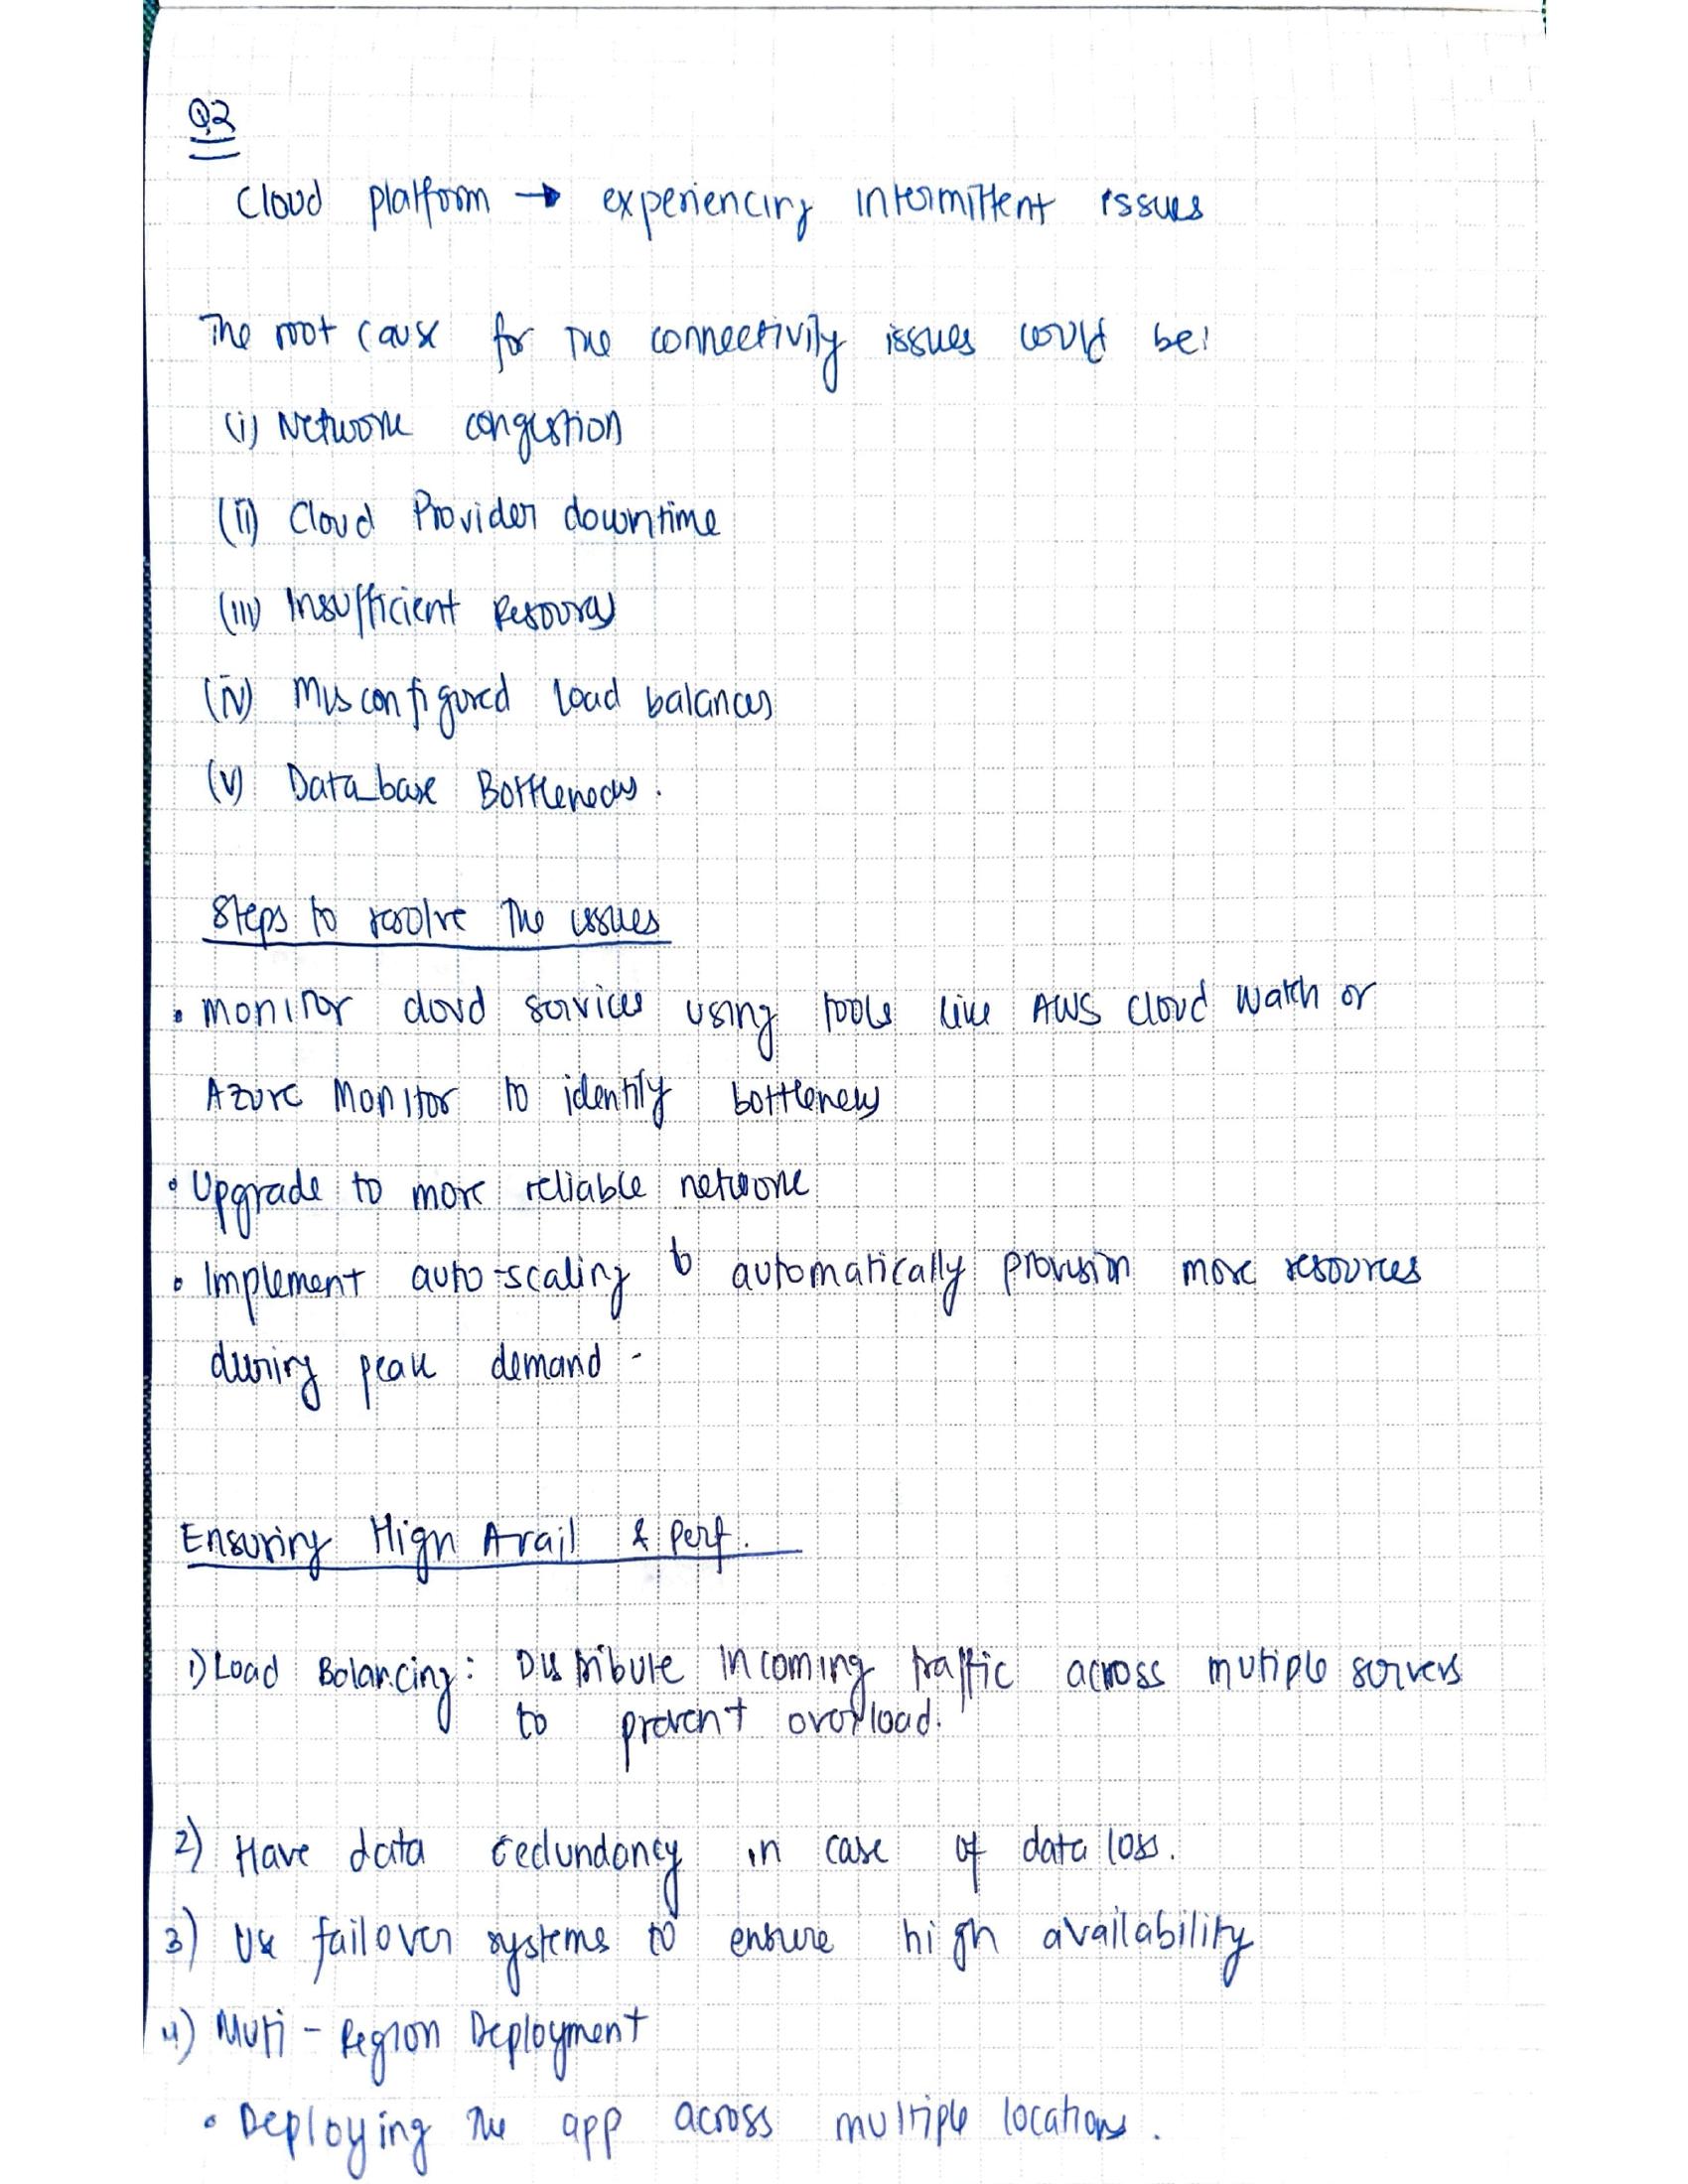 Q2
Cloud platform → experiencing intermittent issues
The root cause for the connectivity issues could be:
(i) Network congestion
(ii) Cloud Provider downtime
(iii) Insufficient Resources
(iv) Misconfigured load balances
(v) Data_base Bottlenecks.
Steps to resolve the issues
• monitor cloud services using tools like AWS Cloud Watch or
Azure Monitor to identify bottlenecks
• Upgrade to more reliable network
• Implement auto-scaling to automatically provision more resources
during peak demand -
Ensuring High Avail & Perf.
1) Load Balancing: Distribute incoming traffic across mutiple servers
to prevent overload.
2) Have data redundancy in case of data loss.
3) Use failover systems to ensure high availability
4) Muti - Region Deployment
• Deploying the app across multiple locations.